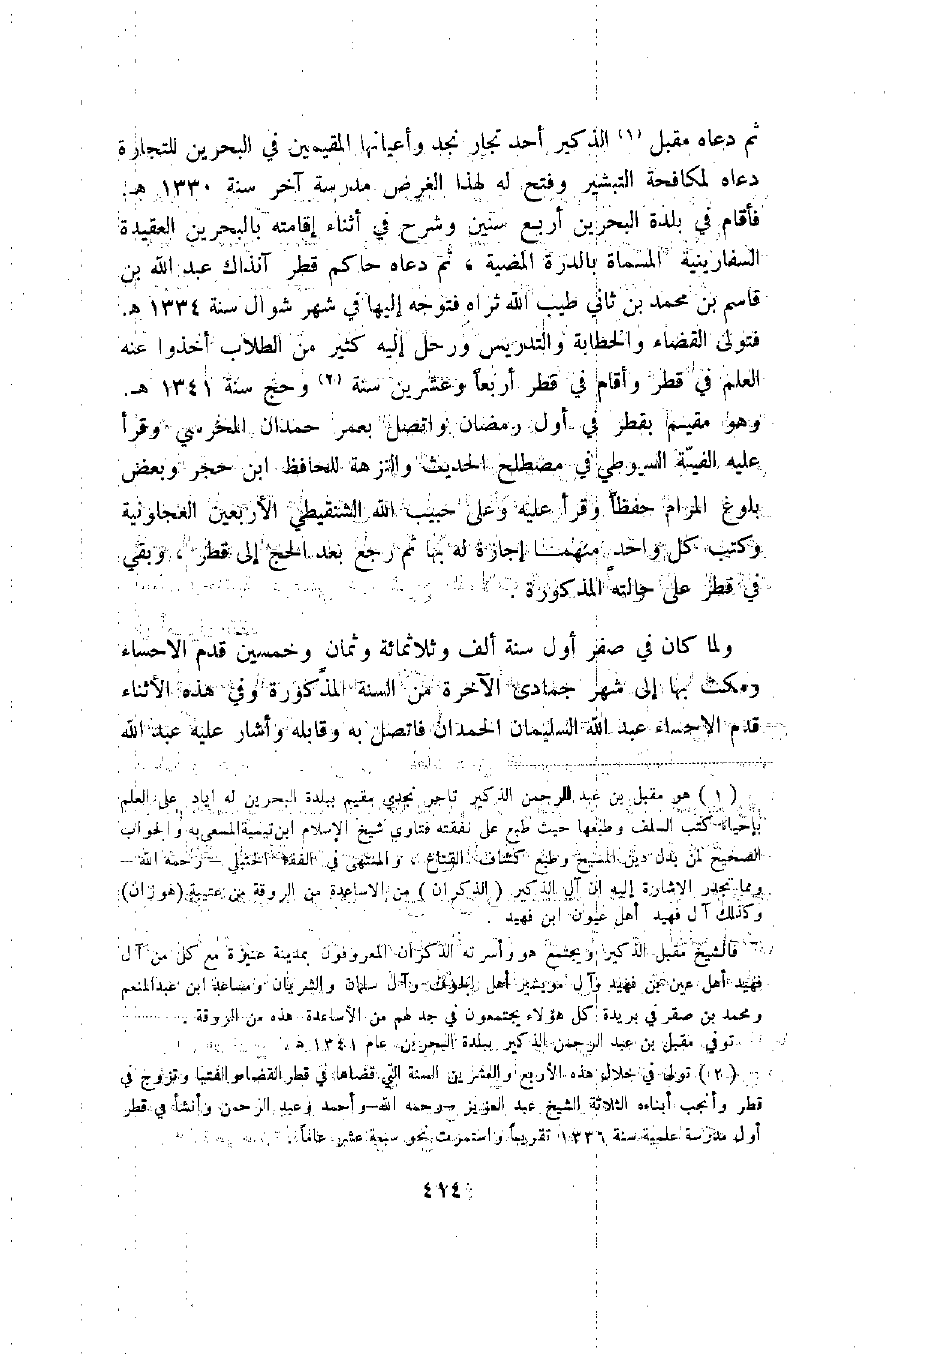 ثم دعاه مقبل (١) الذكير أحد تجار نجد وأعيانها المقيمين في البحرين للتجارة
دعاه لمكافحة التبشير وفتح له لهذا الغرض مدرسة آخر سنة ١٣٣٠ هـ.
فأقام في بلدة البحرين أربع سنين وشرح في أثناء إقامته بالبحرين العقيدة
السفارينية المسماة بالدرة المضية ، ثم دعاه حاكم قطر آنذاك عبد الله بن
قاسم بن محمد بن ثاني طيب الله ثراه فتوجه إليها في شهر شوال سنة ١٣٣٤ هـ.
فتولى القضاء والخطابة والتدريس ورحل إليه كثير من الطلاب أخذوا عنه
العلم في قطر وأقام في قطر أربعاً وعشرين سنة (٢) وحج سنة ١٣٤١ هـ.
وهو مقيم بقطر في أول رمضان واتصل بعمر حمدان المحرسي وقرأ
عليه الفيّة السيوطي في مصطلح الحديث والنزهة للحافظ ابن حجر وبعض
بلوغ المرام حفظاً وقرأ عليه وعلى حبيب الله الشنقيطي الأربعين العجلونية
وكتب كل واحد منهما إجازة له بها ثم رجع بعد الحج إلى قطر ، وبقي
في قطر على حالته المذكورة .
ولما كان في صفر أول سنة ألف وثلاثمائة وثمان وخمسين قدم الاحساء
ومكث بها إلى شهر جمادى الآخرة من السنة المذكورة وفي هذه الأثناء
قدم الاحساء عبد الله السليمان الحمدان فاتصل به وقابله وأشار عليه عبد الله
(١) هو مقبل بن عبد الرحمن الذكير تاجر نجدي مقيم ببلدة البحرين له اياد على العلم
بإحياء كتب السلف وطبعها حيث طبع على نفقته فتاوي شيخ الإسلام ابن تيمية المسمى به والجواب
الصحيح لمن بدل دين المسيح وطبع كشاف القناع ، والمنتهى في الفقه الحنبلي – رحمه الله –
ومما تجدر الاشارة إليه ان آل الذكير (الذكران) من الاساعدة من الروقة من عتيبة (هوزان)
وكذلك آل فهيد أهل عيون ابن فهيد .
فالشيخ مقبل الذكير ويجتمع هو وأسرته الذكران المعروفون بمدينة عنيزة مع كل من آل
فهيد أهل عين بن فهيد وآل مويشير أهل الجوف وآل سلمان والشريان ومضاعة ابن عبدالمنعم
ومحمد بن صقر في بريدة كل هؤلاء يجتمعون في جد لهم من الأساعدة هذه من الروقة .
توفي مقبل بن عبد الرحمن الذكير ببلدة البحرين عام ١٣٤١ هـ
(٢) تولى في خلال هذه الأربع والعشرين السنة التي قضاها في قطر القضاء والفتيا وتزوج في
قطر وأنجب أبناءه الثلاثة الشيخ عبد العزيز – رحمه الله – وأحمد وعبد الرحمن وأنشأ في قطر
أول مدرسة علمية سنة ١٣٣٦ تقريباً واستمرت نحو سبعة عشر عاماً .
٤٢٤